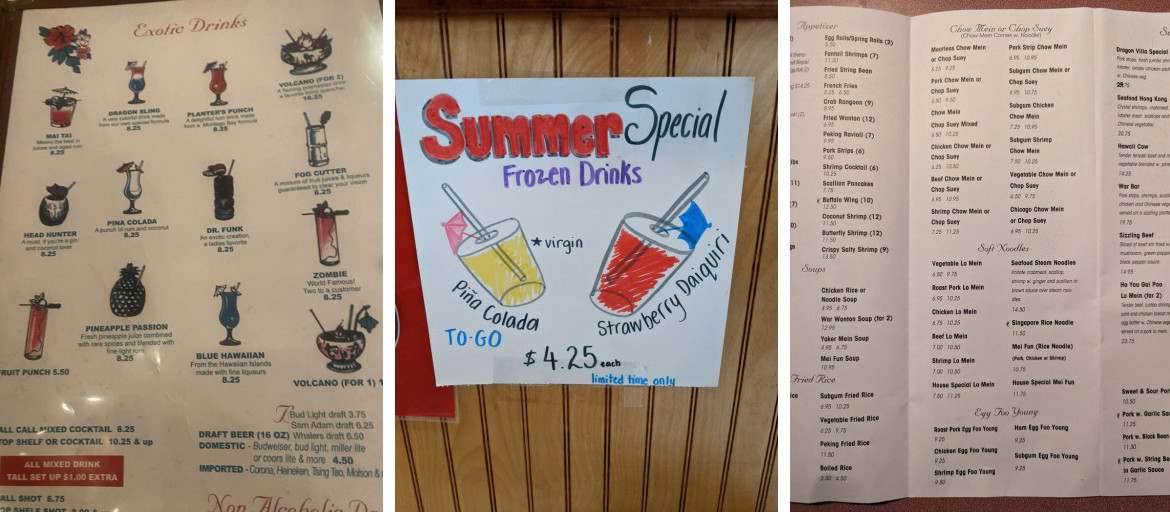 Exotic Drinks
MAI TAI
Means the best in
juices and aged rum
8.25
DRAGON SLING
A very colorful drink made
from our own special formula
8.25
PLANTER'S PUNCH
A delightful rum drink made
from a Montego Bay formula
8.25
VOLCANO (FOR 2)
A flaming polynesian drink
a favorite thirst quencher
HEAD HUNTER
A must, if you're a gin
and coconut lover
8.25
PINA COLADA
A punch of rum and coconut
8.25
DR. FUNK
An exotic creation,
a ladies favorite
8.25
FOG CUTTER
A mixture of fruit juices & liqueurs
guaranteed to clear your vision
8.25
ZOMBIE
World Famous!
Two to a customer
8.25
FRUIT PUNCH 5.50
PINEAPPLE PASSION
Fresh pineapple juice combined
with rare spices and blended with
fine light rum
8.25
BLUE HAWAIIAN
From the Hawaiian Islands
made with fine liqueurs
8.25
VOLCANO (FOR 1) 1
ALL CALL MIXED COCKTAIL 8.25
TOP SHELF OR COCKTAIL 10.25 & up
ALL MIXED DRINK
TALL SET UP $1.00 EXTRA
ALL SHOT 6.75
Bud Light draft 3.75
Sam Adam draft 6.25
DRAFT BEER (16 OZ) Whalers draft 6.50
DOMESTIC - Budweiser, bud light, miller lite
or coors lite & more 4.50
IMPORTED - Corona, Heineken, Tsing Tao, Molson &
Non Alcoholic
Summer Special
Frozen Drinks
★virgin
Piña Colada
Strawberry Daiquiri
TO-GO
$4.25 each
limited time only
Appetizer
Egg Rolls/Spring Rolls (2)
5.50
Fantail Shrimps (7)
11.50
Fried String Bean
8.50
French Fries
5.25 6.50
Crab Rangoon (9)
9.95
Fried Wonton (12)
6.95
Peking Ravioli (7)
9.95
Pork Strips (6)
9.60
Shrimp Cocktail (6)
10.25
Scallion Pancakes
7.75
Buffalo Wing (10)
12.50
Coconut Shrimp (12)
11.50
Butterfly Shrimp (12)
11.50
Crispy Salty Shrimp (9)
13.50
Soups
Chicken Rice or
Noodle Soup
4.95 6.75
War Wonton Soup (for 2)
12.95
Yoker Mein Soup
4.95 6.75
Mei Fun Soup
10.95
Fried Rice
Subgum Fried Rice
6.95 10.25
Vegetable Fried Rice
6.25 9.75
Peking Fried Rice
11.50
Boiled Rice
Chow Mein or Chop Suey
(Chow Mein Comes w. Noodle)
Meatless Chow Mein
or Chop Suey
6.25 9.25
Pork Chow Mein or
Chop Suey
6.50 9.50
Chow Mein
Chop Suey Mixed
6.50 10.25
Chicken Chow Mein or
Chop Suey
6.50 10.25
Beef Chow Mein or
Chop Suey
6.95 10.95
Shrimp Chow Mein or
Chop Suey
7.25 11.25
Pork Strip Chow Mein
6.95 10.95
Subgum Chow Mein or
Chop Suey
6.95 10.75
Subgum Chicken
Chow Mein
7.25 10.95
Subgum Shrimp
Chow Mein
7.50 10.25
Vegetable Chow Mein or
Chop Suey
6.50 9.75
Chicago Chow Mein
or Chop Suey
6.95 10.25
Soft Noodles
Vegetable Lo Mein
6.50 9.75
Roast Pork Lo Mein
6.95 10.25
Chicken Lo Mein
6.75 10.25
Beef Lo Mein
7.00 10.50
Shrimp Lo Mein
7.00 10.50
House Special Lo Mein
7.50 11.25
Seafood Steam Noodles
Imitate crabmeat, scallop,
shrimp w. ginger and scallion in
brown sauce over steam noo-
dles
14.50
Singapore Rice Noodle
11.50
Mei Fun (Rice Noodle)
(Pork, Chicken or Shrimp)
10.75
House Special Mei Fun
11.75
Egg Foo Young
Roast Pork Egg Foo Young
9.25
Chicken Egg Foo Young
9.25
Shrimp Egg Foo Young
9.50
Ham Egg Foo Young
9.25
Subgum Egg Foo Young
9.25
Dragon Villa Special
Seafood Hong Kong
20.75
Hawaii Cow
14.25
War Bar
19.75
Sizzling Beef
14.95
Ho Yau Gai Poo
Lo Mein (for 2)
23.75
Sweet & Sour Por
10.50
Pork w. Garlic Sau
11.25
Pork w. Black Bean
11.50
Pork w. String Be
in Garlic Sauce
11.75